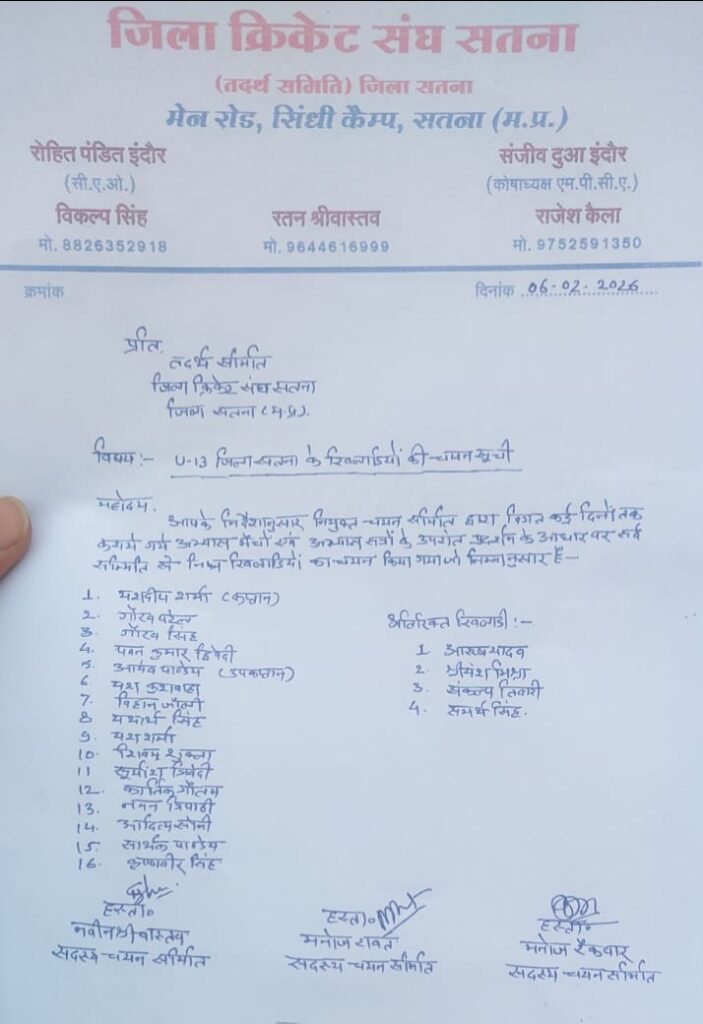 जिला क्रिकेट संघ सतना
(तदर्थ समिति) जिला सतना
मेन रोड, सिंधी कैम्प, सतना (म.प्र.)
रोहित पंडित इंदौर
(सी.ए.ओ.)
संजीव दुआ इंदौर
(कोषाध्यक्ष एम.पी.सी.ए.)
विकल्प सिंह
मो. 8826352918
रतन श्रीवास्तव
मो. 9644616999
राजेश कैला
मो. 9752591350
क्रमांक
दिनांक 06-02-2026
प्रति,
तदर्थ समिति
जिला क्रिकेट संघ सतना
जिला सतना (म.प्र.)
विषय:- U-13 जिला सतना के खिलाडियों की चयन सूची
महोदय,
आपके निर्देशानुसार नियुक्त चयन समिति द्वारा विगत कई दिनों तक
कराये गये अभ्यास मैचों एवं अभ्यास सत्रों के उपरांत प्रदर्शन के आधार पर सर्व
सम्मिति से निम्न खिलाडियों का चयन किया गया जो निम्नानुसार है -
1. यशदीप शर्मा (कप्तान)
2. गौरव पटेल
3. गौरव सिंह
4. पवन कुमार द्विवेदी
5. आर्यव पाण्डेय (उपकप्तान)
6. यश कुशवाहा
7. विहान
8. यथार्थ सिंह
9. यश शर्मा
10. शिवम शुक्ला
11. सूर्यांश त्रिवेदी
12. कार्तिक गौतम
13. नमन त्रिपाठी
14. आदित्य सोनी
15. सार्थक पाण्डेय
16. कृष्णवीर सिंह
अतिरिक्त खिलाडी :-
1. आरुष यादव
2. श्रीयंश मिश्रा
3. संकल्प तिवारी
4. समर्थ सिंह.
हस्ता०
नवीन श्रीवास्तव
सदस्य चयन समिति
हस्ता०
मनोज रावत
सदस्य चयन समिति
हस्ता०
मनोज रैकवार
सदस्य चयन समिति